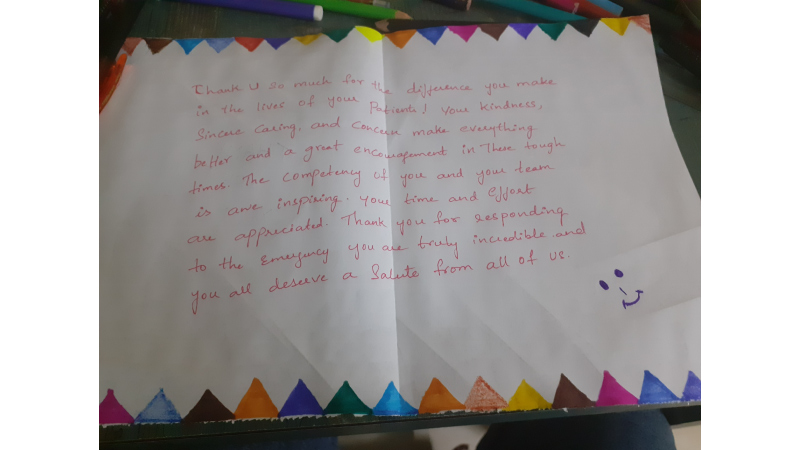 Thank U so much for the difference you make
in the lives of your Patients! Your Kindness,
Sincere Caring, and Concern make everything
better and a great encouragement in These tough
times. The Competency of you and your team
is awe inspiring. Your time and effort
are appreciated. Thank you for responding
to the Emergency you are truly incredible and
you all deserve a Salute from all of us.